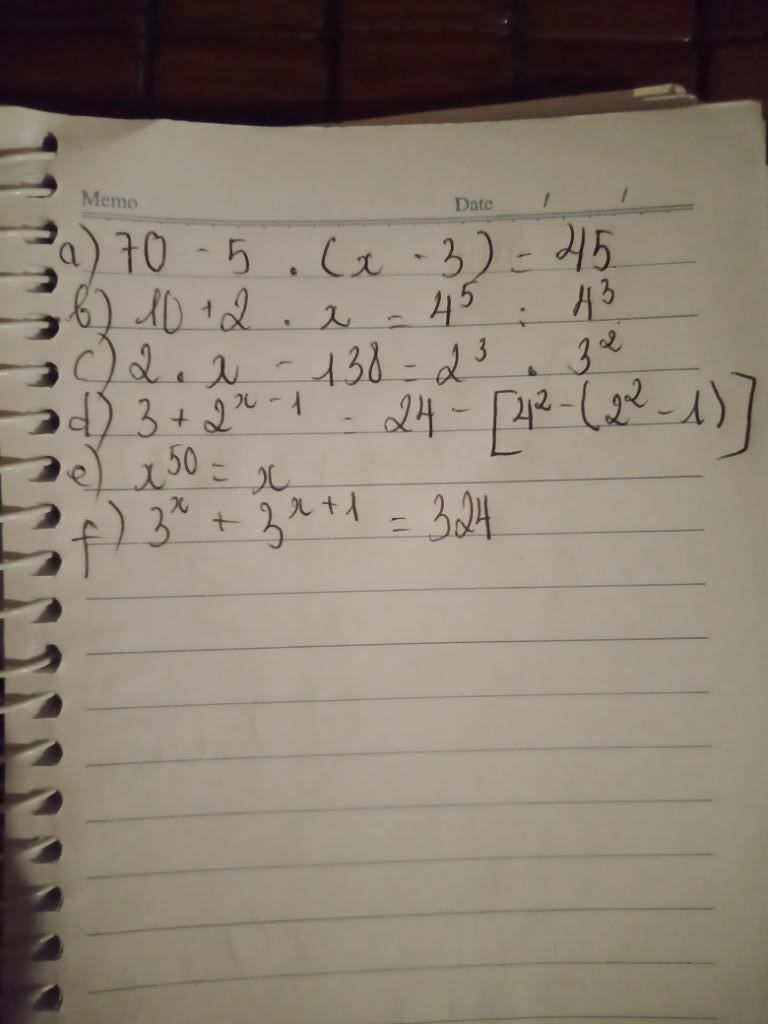 Memo Date / /
a) 70 - 5 . (x - 3) = 45
b) 10 + 2 . x = 4⁵ : 4³
c) 2 . x - 138 = 2³ . 3²
d) 3 + 2ˣ⁻¹ = 24 - [4² - (2² - 1)]
e) x⁵⁰ = x
f) 3ˣ + 3ˣ⁺¹ = 324